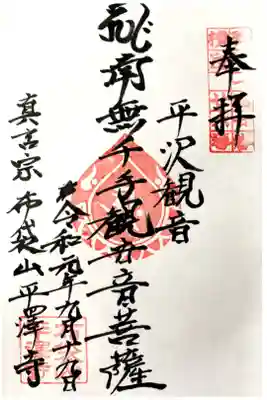 奉拝
平沢観音
南無千手観世音菩薩
令和元年九月十九日
真言宗布袋山平澤寺